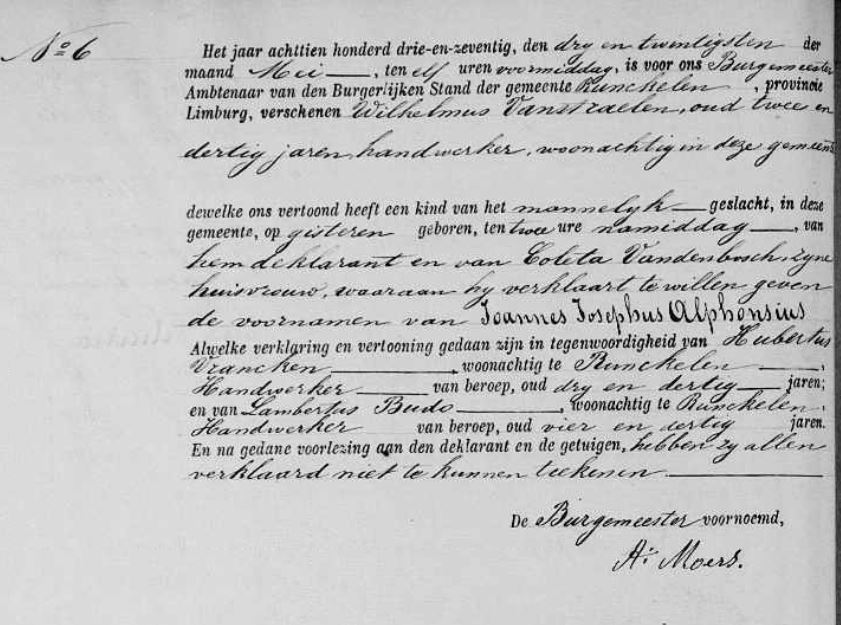 Nº 6
Het jaar achttien honderd drie-en-zeventig, den dry en twintigsten der
maand Mei, ten elf uren voormiddag, is voor ons Burgemeester
Ambtenaar van den Burgerlijken Stand der gemeente Runckelen, provincie
Limburg, verschenen Wilhelmus Vanstraelen, oud twee en
dertig jaren, handwerker, woonachtig in deze gemeente
dewelke ons vertoond heeft een kind van het mannelyk geslacht, in deze
gemeente, op gisteren geboren, ten twee ure namiddag, van
hem deklarant en van Coleta Vandenbosch, zyne
huisvrouw, waaraan hy verklaart te willen geven
de voornamen van Joannes Josephus Alphonsius
Alwelke verklaring en vertooning gedaan zijn in tegenwoordigheid van Hubertus
Vrancken, woonachtig te Runckelen,
Handwerker van beroep, oud dry en dertig jaren;
en van Lambertus Budo, woonachtig te Runckelen,
Handwerker van beroep, oud vier en dertig jaren.
En na gedane voorlezing aan den deklarant en de getuigen, hebben zy allen
verklaard niet te kunnen teekenen
De Burgemeester voornoemd,
A. Moers.